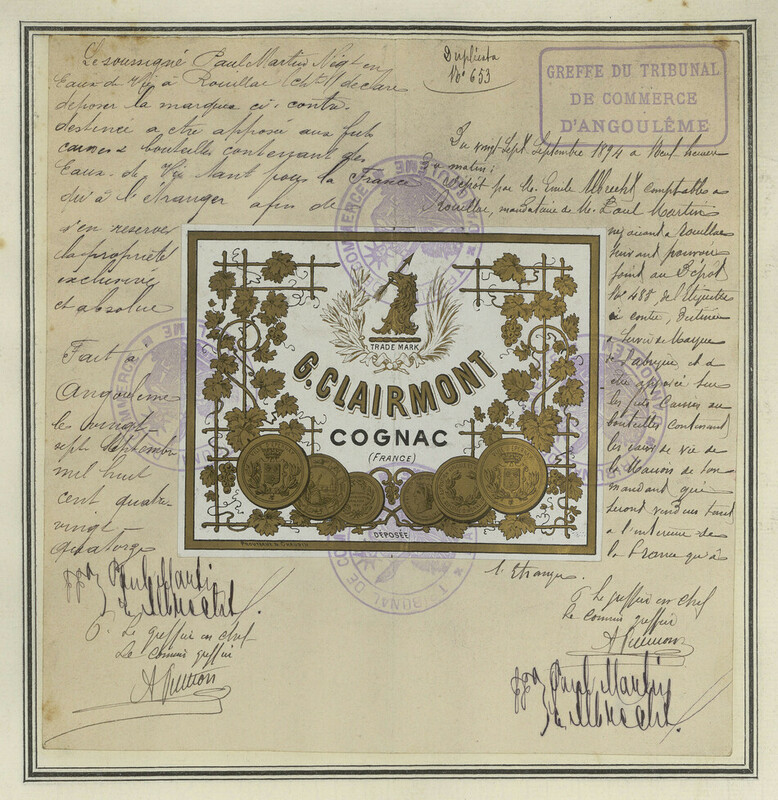 Le soussigné Paul Martin Négt en
Eaux de Vie à Rouillac (Chte) déclare
déposer la marque ci-contre
destinée a etre apposée aux futs
caisses & bouteilles contenant des
Eaux de Vie tant pour la France
qu'à l'étranger afin de
s'en reserver
la propriété
exclusive
et absolue
Fait à
Angoulème
le vingt
sept Septembre
mil huit
cent quatre
vingt
quatorze
ppon Paul Martin
E. Albrecht
Le greffier en chef
Le commis greffier
Duplicata
No 653
GREFFE DU TRIBUNAL
DE COMMERCE
D'ANGOULÊME
Du vingt sept Septembre 1894 a neuf heures
du matin:
Dépôt par M. Emile Albrecht comptable a
Rouillac, mandataire de M. Paul Martin
négociant a Rouillac
suivant pouvoir
joint au Dépot
No 488 de l'Etiquette
ci contre, destinée
a servir de Marque
de fabrique et a
etre apposée sur
les futs caisses ou
bouteilles contenant
les eaux de vie de
la Maison de son
mandant qui
seront vendues tant
a l'interieur de
la France qu'à
l'Etranger.
Le greffier en chef
Le commis greffier
ppon Paul Martin
E. Albrecht
TRADE MARK
G. CLAIRMONT
COGNAC
(FRANCE)
DÉPOSÉE
TRIBUNAL DE COMMERCE